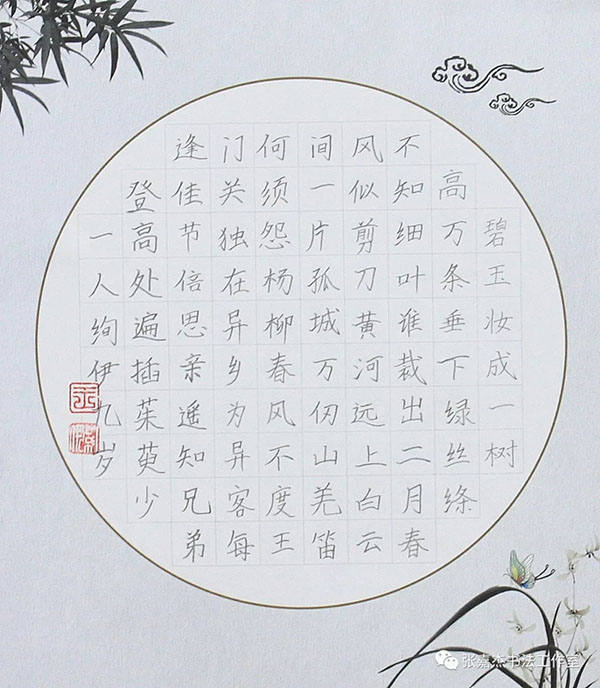 碧玉妆成一树
高万条垂下绿丝绦
不知细叶谁裁出二月春
风似剪刀黄河远上白云
间一片孤城万仞山羌笛
何须怨杨柳春风不度王
门关独在异乡为异客每
逢佳节倍思亲遥知兄弟
登高处遍插茱萸少
一人绚伊九岁
张嘉杰书法工作室